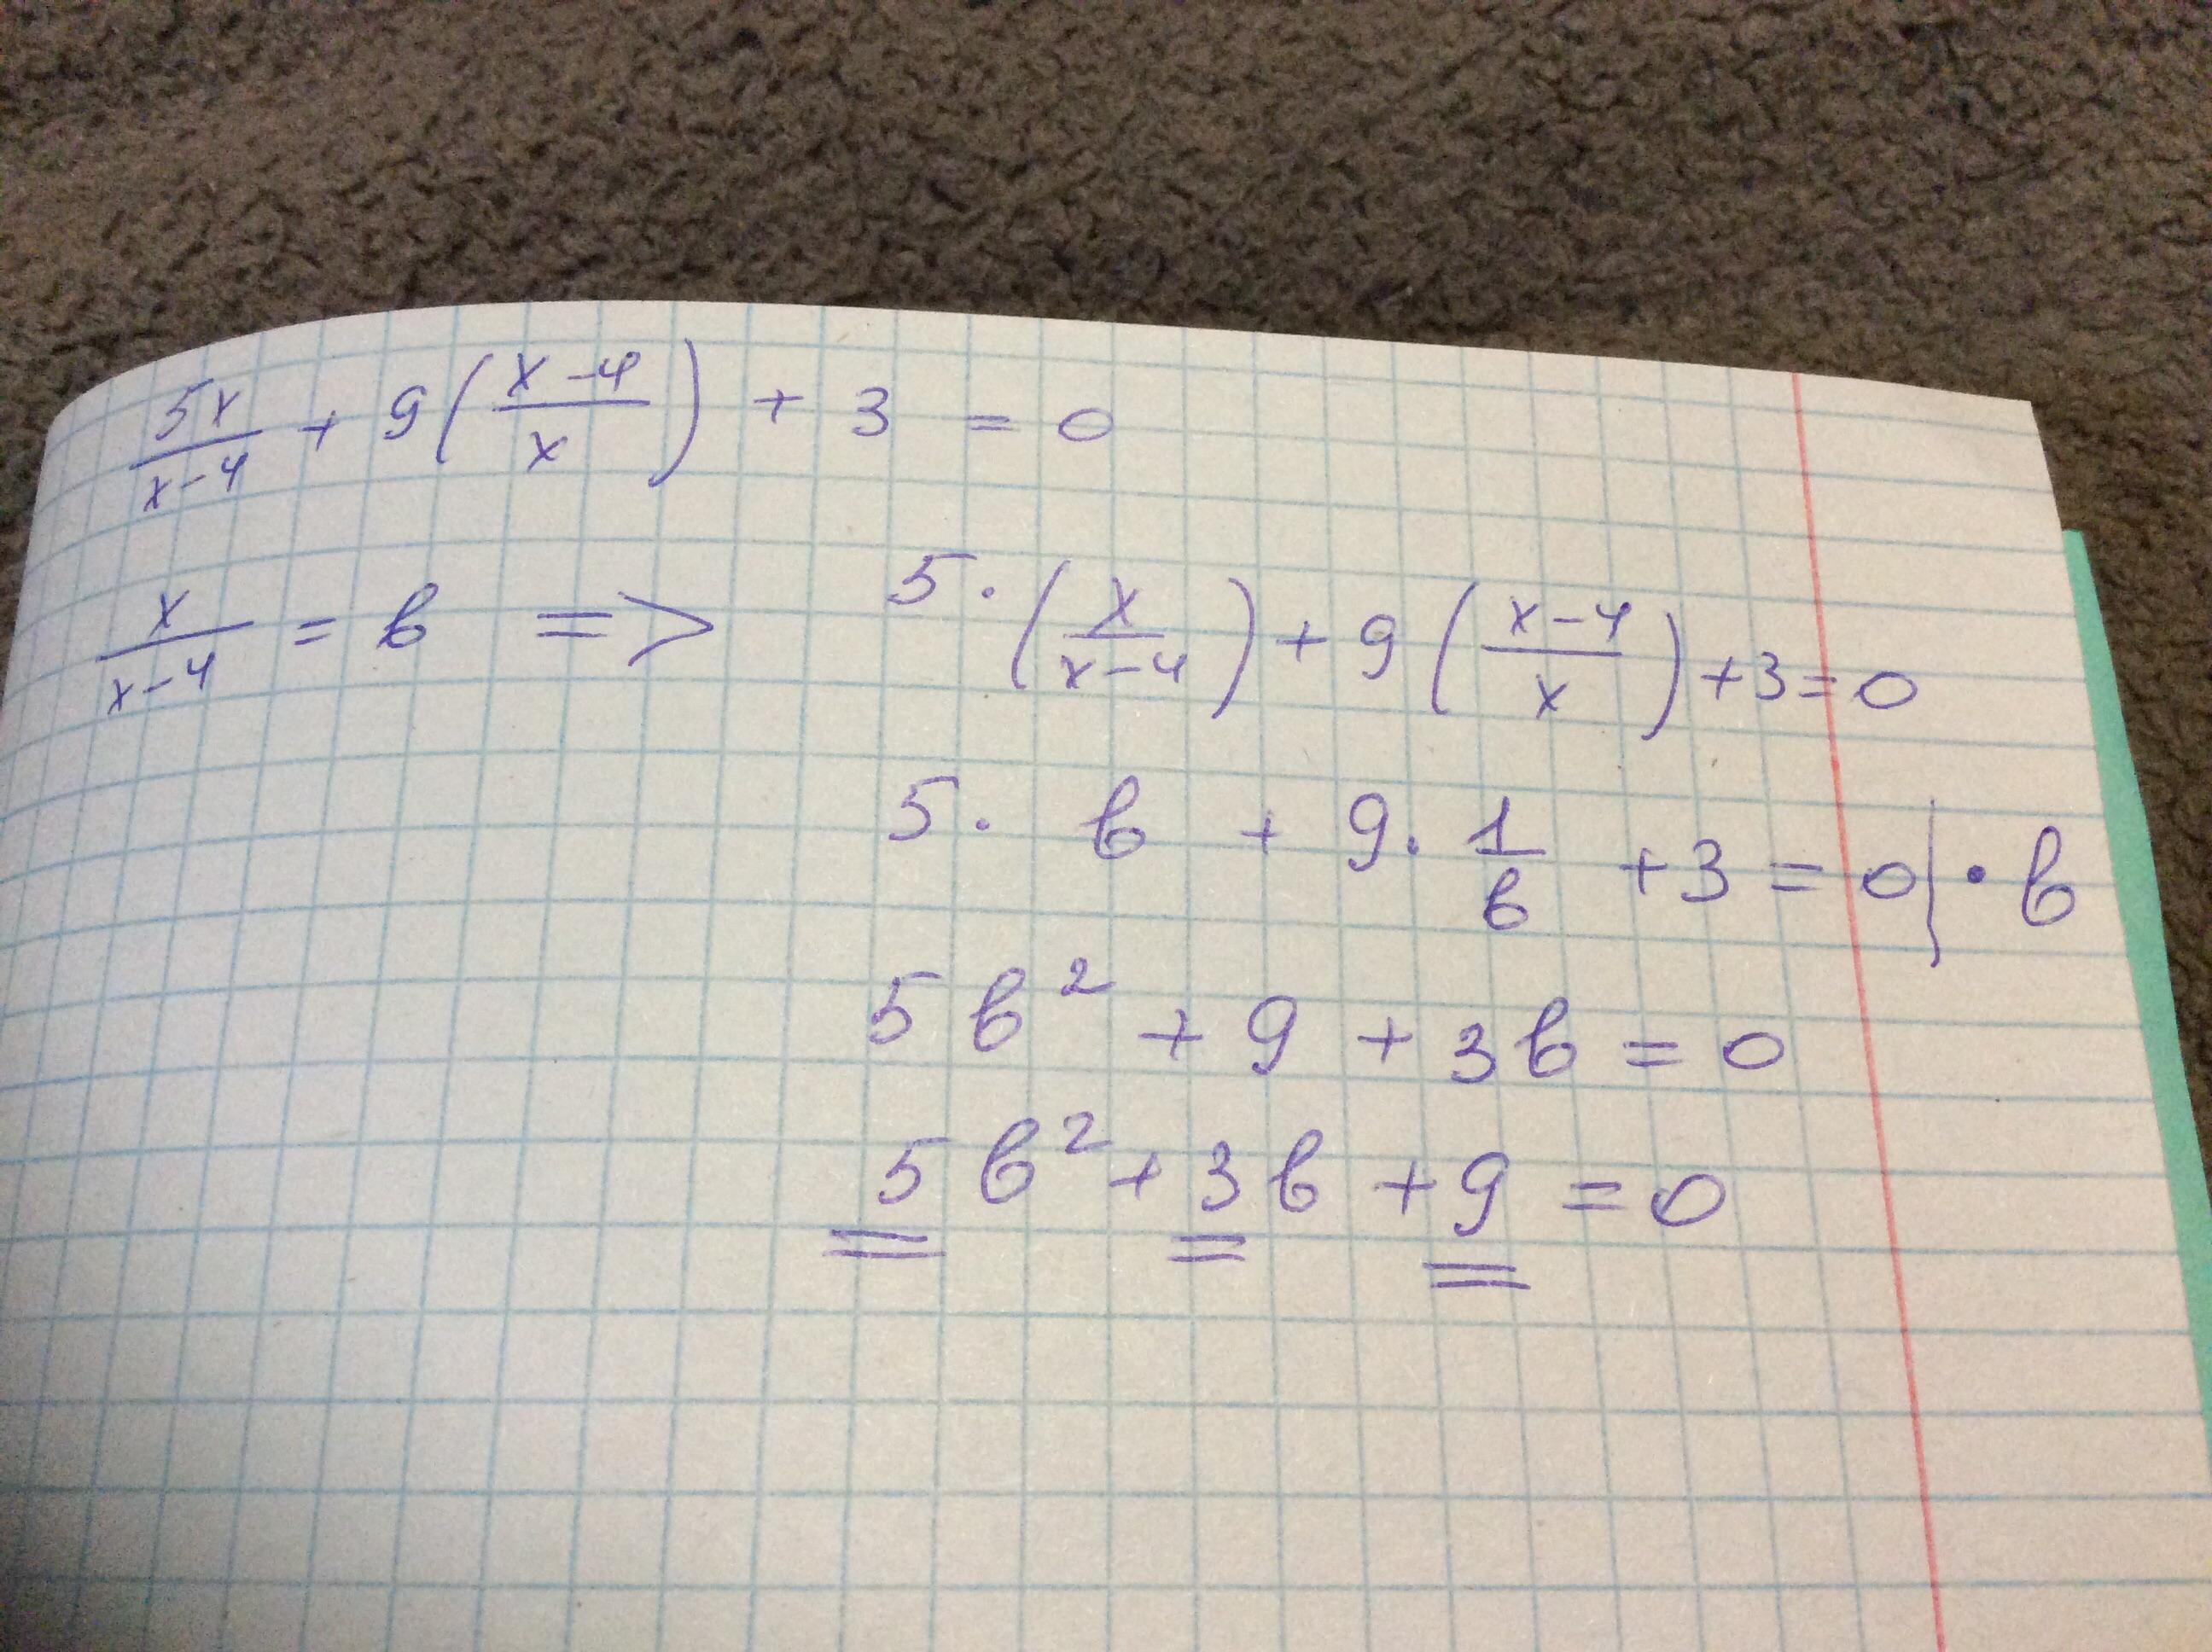 5x/(x-4) + 9((x-4)/x) + 3 = 0
x/(x-4) = b => 5·(x/(x-4)) + 9((x-4)/x) + 3 = 0
5· b + 9· 1/b + 3 = 0 | · b
5b² + 9 + 3b = 0
5b² + 3b + 9 = 0